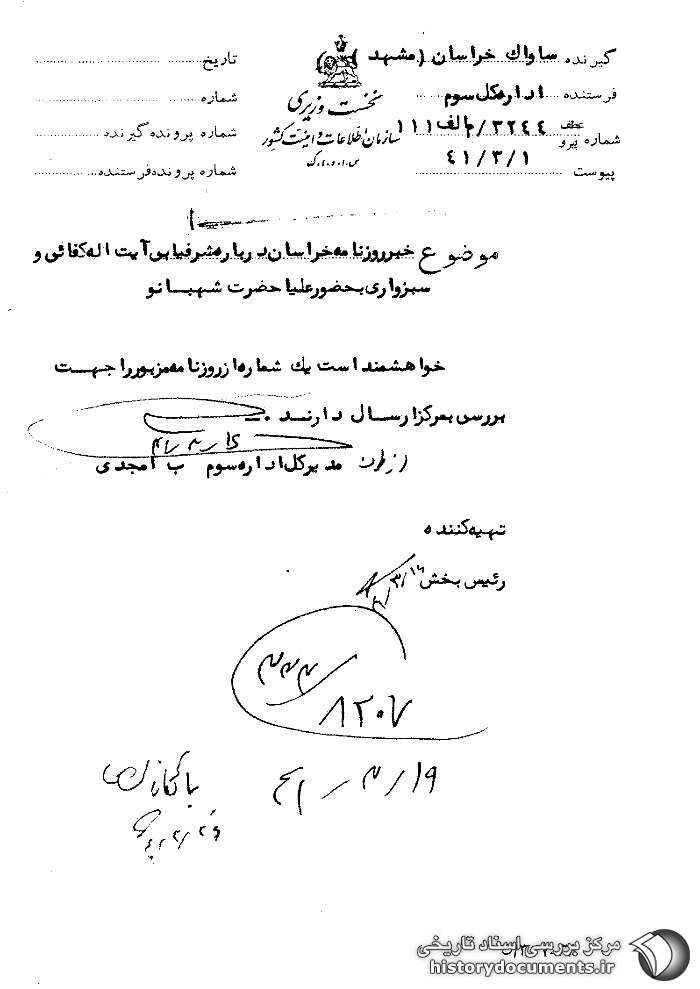 گیرنده ساواك خراسان (مشهد
فرستنده اداره کل سوم
عطف ۳۲۴۴/م الف ۱۱۱
شماره پیرو
۴۱/۳/۱
پیوست
نخست وزیری
سازمان اطلاعات و امنیت کشور
س.ا.و.ا.ک
تاریخ
شماره
شماره پرونده گیرنده
شماره پرونده فرستنده
موضوع خبر روزنامه خراسان درباره شرفیابی آیت اله کفائی و
سبزواری بحضور علیا حضرت شهبانو
خواهشمند است یك شماره از روزنامه مزبور را جهت
بررسی بمرکز ارسال دارند .
از طرف مدیر کل اداره سوم ب امجدی
تهیه کننده
رئیس بخش ۳/۱۶
۸۲۰۷
مرکز بررسی اسناد تاریخی
historydocuments.ir